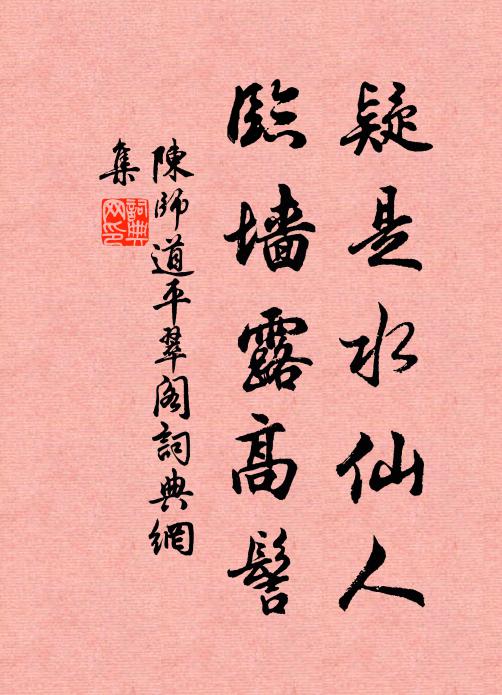 疑是水仙人
臨墻露高髻
陳師道平翠閣詞典網
集
詞典
网印